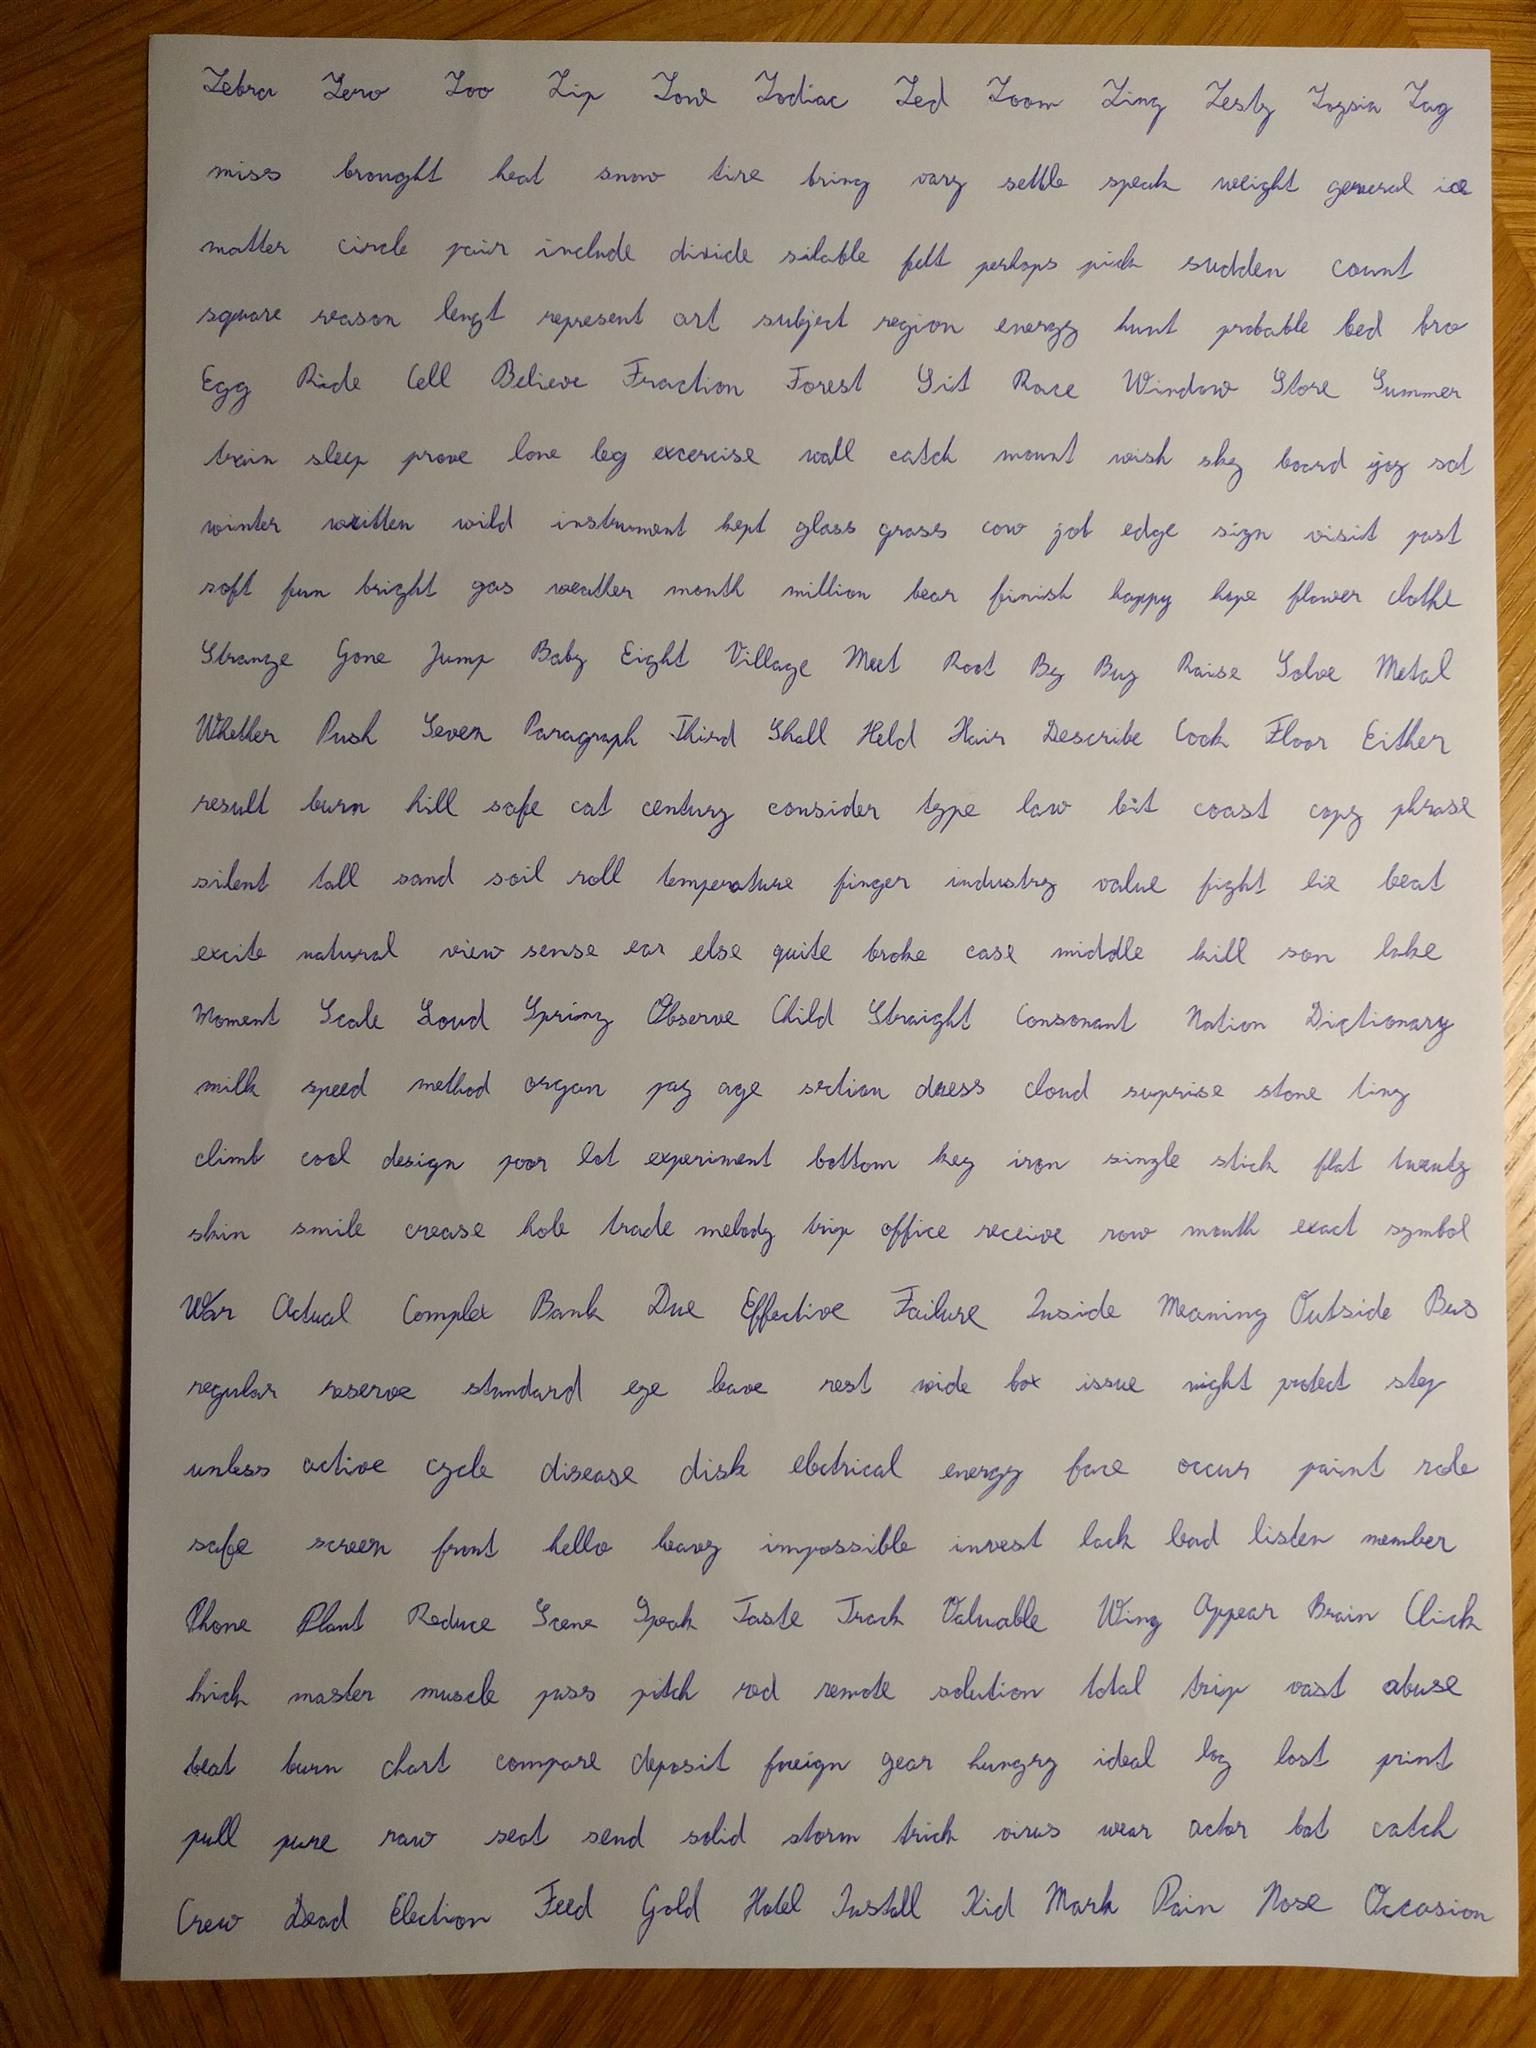 Zebra Zero Zoo Zip Zone Zodiac Zed Zoom Zing Zesty Zoysia Zag
miss brought heat snow tire bring vary settle speak weight general ice
matter circle pair include divide silable felt perhaps pick sudden count
square reason lengt represent art subject region energy hunt probable bed bro
Egg Ride Cell Believe Fraction Forest Sit Race Window Store Summer
train sleep prove lone leg excercise wall catch mount wish sky board joy sat
winter written wild instrument kept glass grass cow job edge sign visit past
soft fun bright gas weather month million bear finish happy hope flower clothe
Strange Gone Jump Baby Eight Village Meet Root By Buy Raise Solve Metal
Whether Push Seven Paragraph Third Shall Held Hair Describe Cook Floor Either
result burn hill safe cat century consider type law bit coast copy phrase
silent tall sand soil roll temperature finger industry value fight lie beat
excite natural view sense ear else quite broke case middle kill son lake
Moment Scale Loud Spring Observe Child Straight Consonant Nation Dictionary
milk speed method organ pay age srction dress cloud suprise stone tiny
climb cool design poor lot experiment bottom key iron single stick flat twenty
skin smile crease hole trade melody trip office receive row mouth exact symbol
War Actual Complex Bank Due Effective Failure Inside Meaning Outside Bus
regular reserve standard eye leave rest wide box issue night protect step
unless active cycle disease disk electrical energy face occur paint role
safe screen front hello heavy impossible invest lack lead listen member
Phone Plant Reduce Scene Speak Taste Track Valuable Wing Appear Brain Click
kick master muscle pass pitch rod remote solution total trip vast abuse
beat burn chart compare deposit foreign gear hungry ideal log lost print
pull pure raw seat send solid storm trick virus wear actor bat catch
Crew Dead Election Feed Gold Hotel Install Kid Mark Pain Nose Occasion